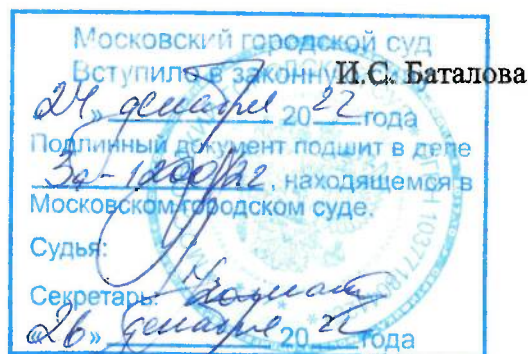 Московский городской суд
Вступило в законну И.С. Баталова
24» декабря 2022 года
Подлинный документ подшит в деле
3а-1200/22, находящемся в
Московском городском суде.
Судья:
Секретарь:
«26» декабря 2022 года